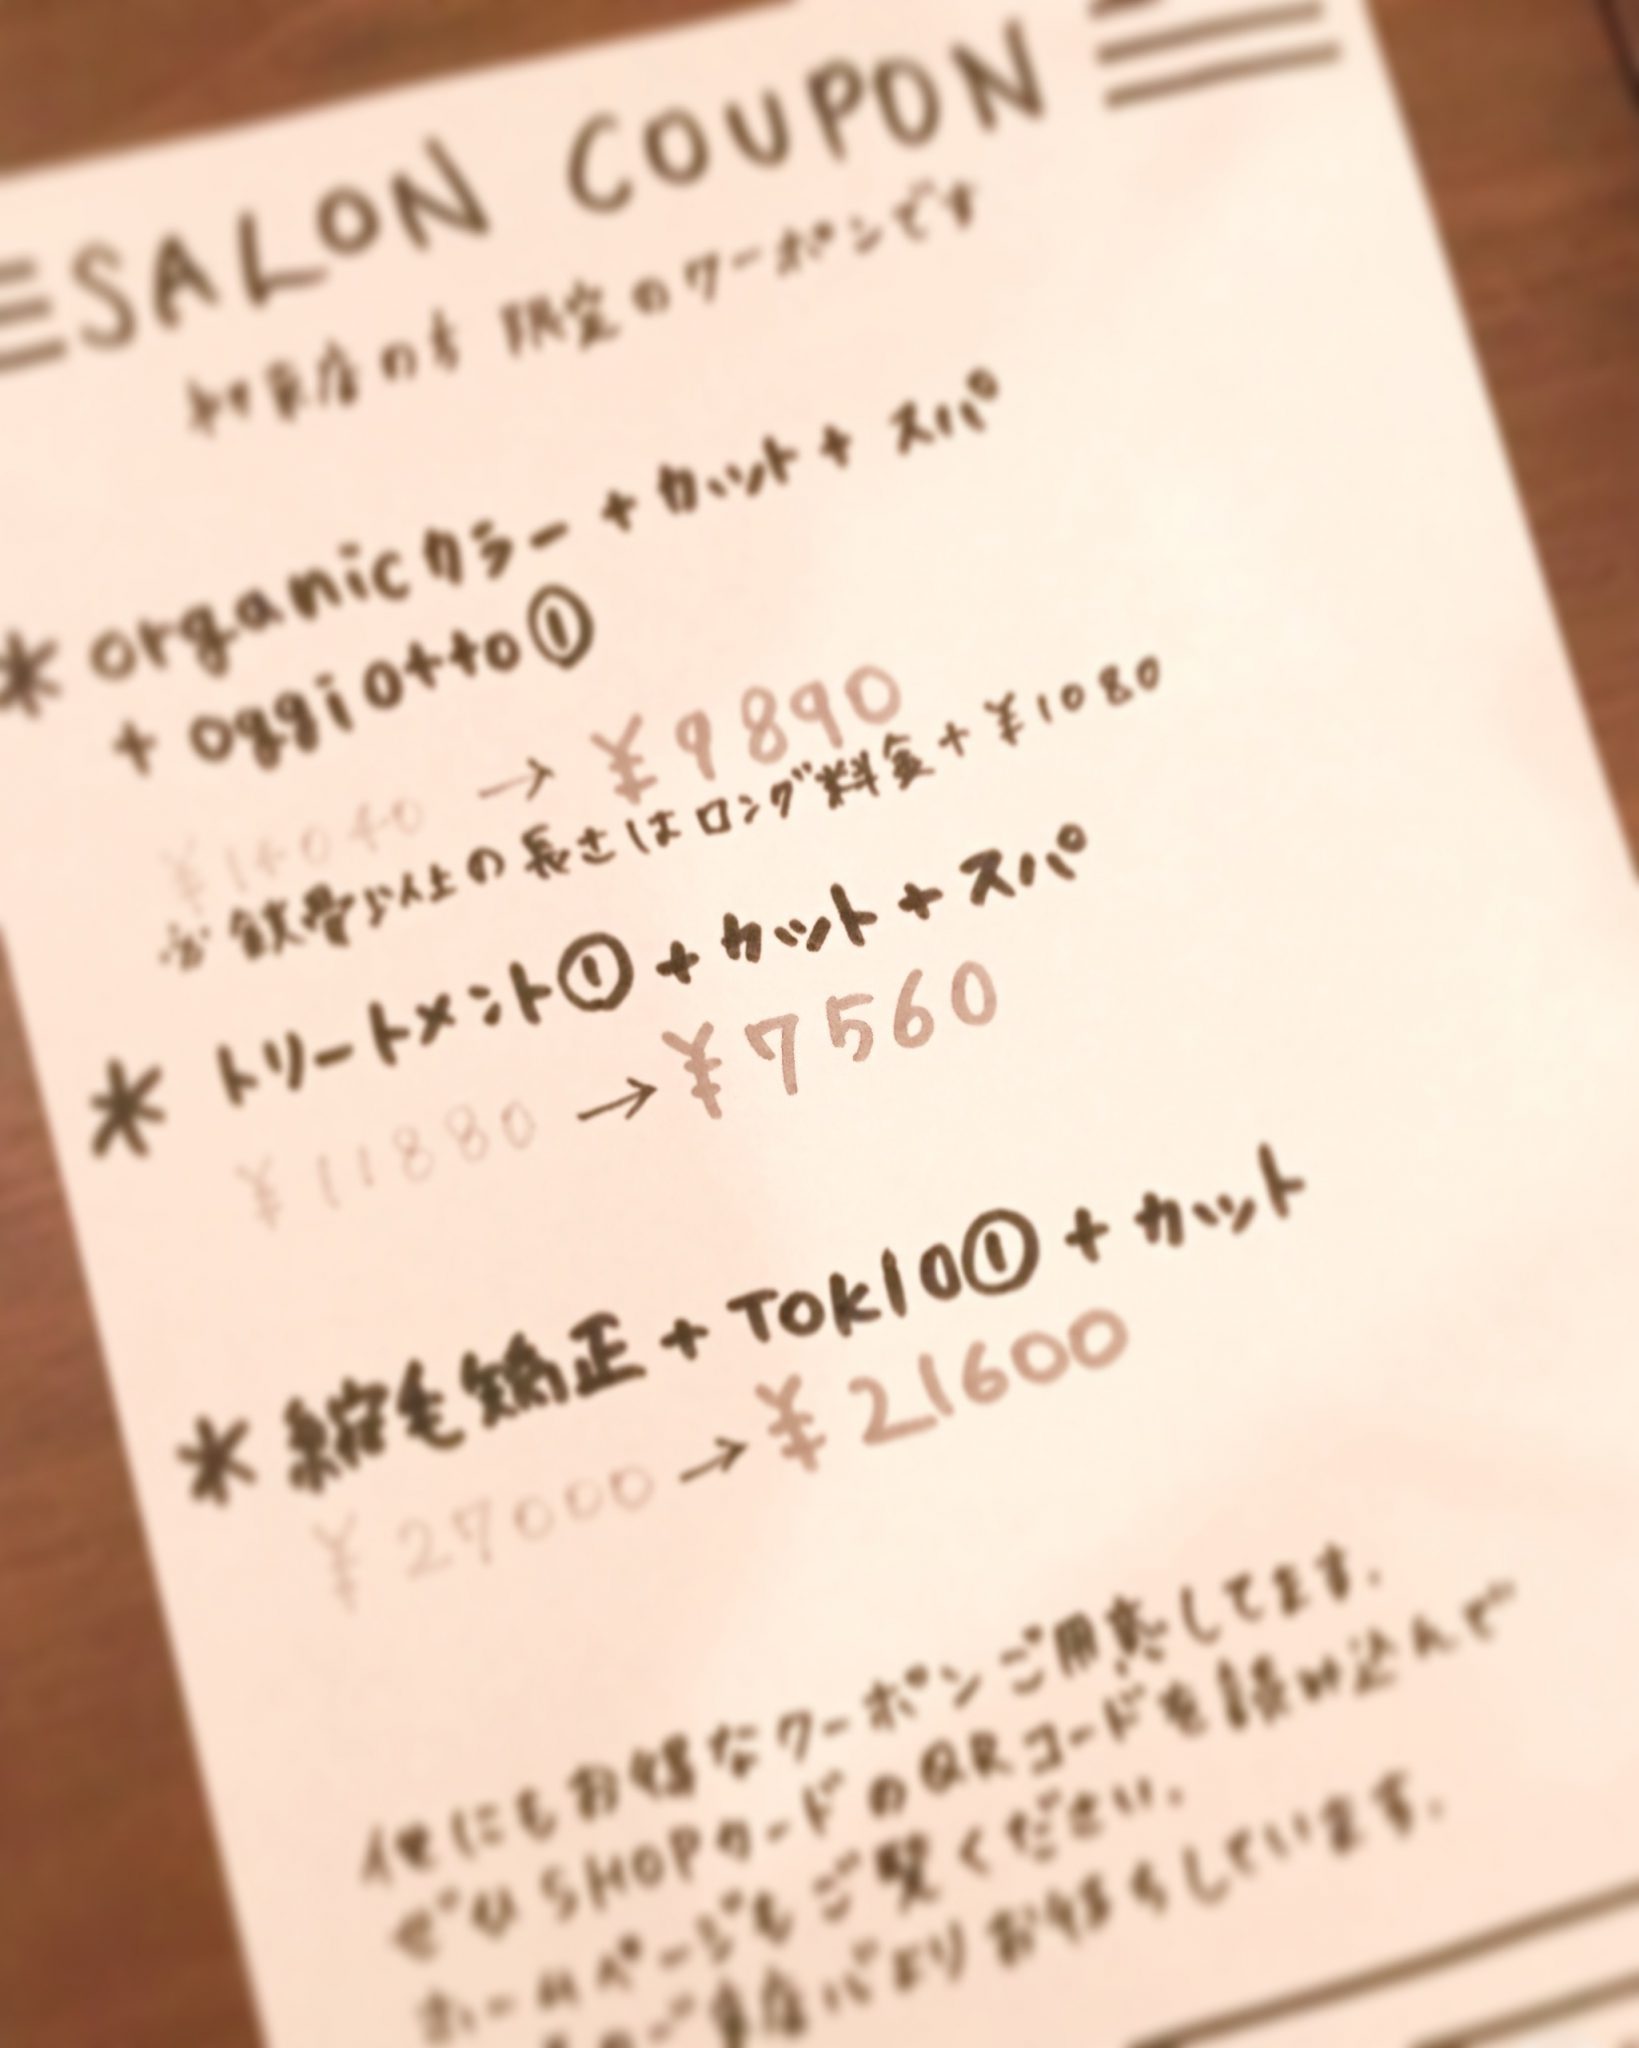 SALON COUPON
初来店の方 限定のクーポンです
* organicカラー + カット + スパ
+ oggiotto①
¥14040 → ¥9890
※鎖骨以上の長さはロング料金 + ¥1080
* トリートメント① + カット + スパ
¥11880 → ¥7560
* 縮毛矯正 + TOKIO① + カット
¥27000 → ¥21600
他にもお得なクーポンご用意してます.
ぜひSHOPカードのQRコードを読み込んで
ホームページもご覧ください.
ご来店心よりお待ちしています.